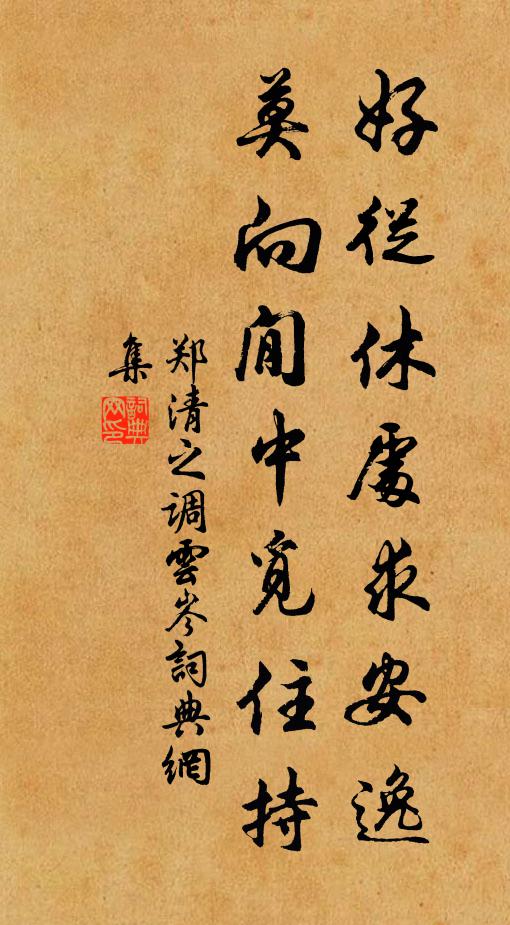 好從休處求安逸
莫向閒中覓住持
郑清之调雲岑詞典網
集
詞典網印